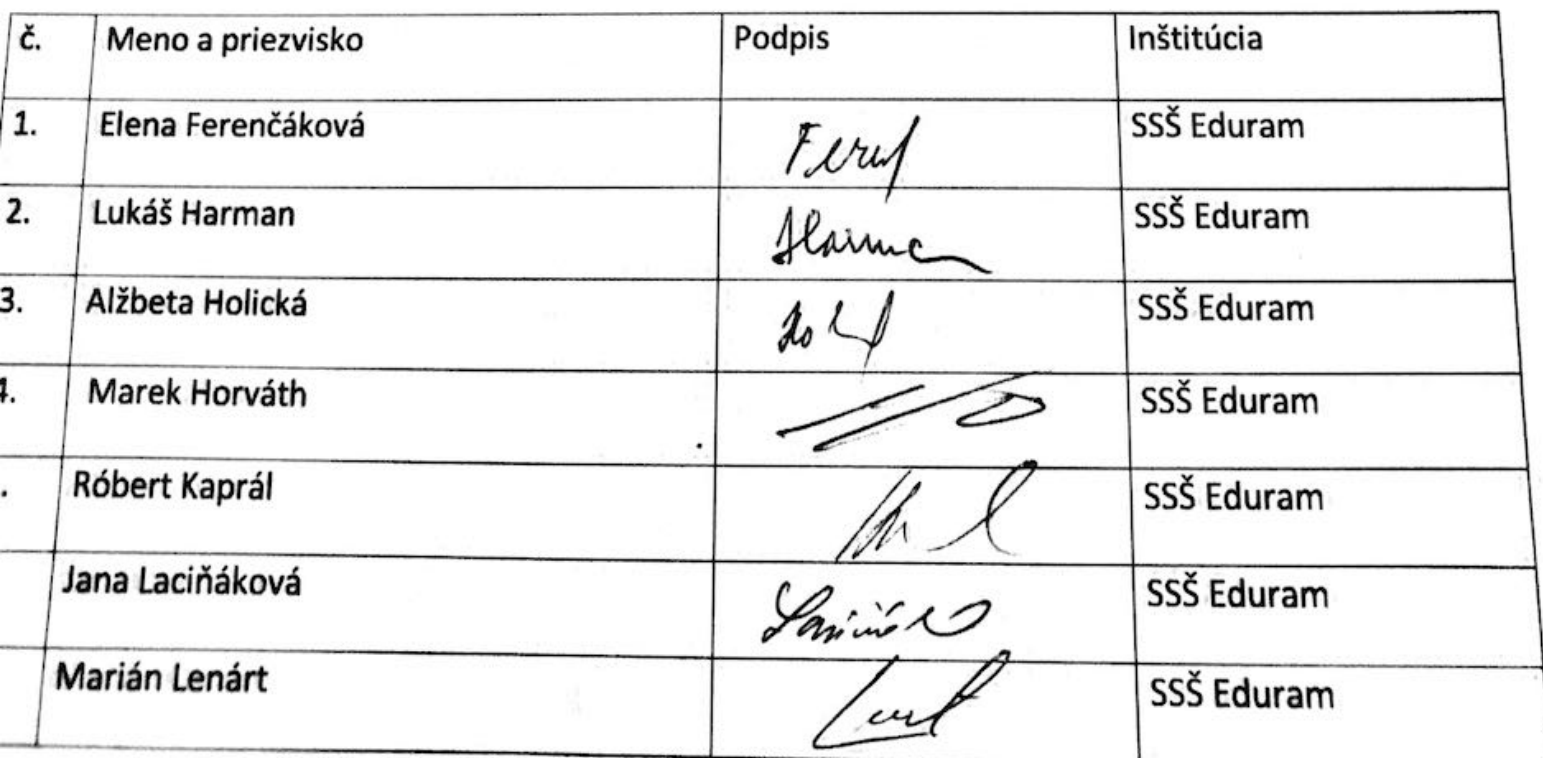 č. Meno a priezvisko Podpis Inštitúcia
1. Elena Ferenčáková SSŠ Eduram
2. Lukáš Harman SSŠ Eduram
3. Alžbeta Holická SSŠ Eduram
4. Marek Horváth SSŠ Eduram
. Róbert Kaprál SSŠ Eduram
Jana Laciňáková SSŠ Eduram
Marián Lenárt SSŠ Eduram